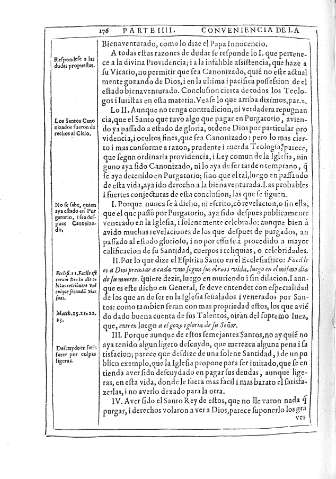 176 PARTE IIII. CONVENIENCIA DE LA
Bienaventurado, como lo dize el Papa Innocencio.
Respondese a las
dudas propuestas.
A todas estas razones de dudar se responde lo I. que pertene-
ce a la divina Providencia; i a la infalible assistencia, que haze a
su Vicario, no permitir que sea Canonizado, quiē no este actual
mente gozando de Dios, i en la ultima i pacifica possession de el
estado bienaventurado. Conclusion cierta de todos los Teolo-
gos i Iuristas en esta materia. Vease lo que arriba diximos, par.
Los Santos Cano
nizados fueron de
recho al Cielo.
Lo II. Aunque no tenga contradicion, ni verdadera repugnan
cia, que el Santo que tuvo algo que pagar en Purgatorio, avien-
do ya passado a estado de gloria, ordene Dios por particular pro
videncia, i ocultos fines, que sea Canonizado: pero lo mas cier-
to i mas conforme a razon, prudente i cuerda Teologia, parece,
que segun ordinaria providencia, i Ley comun de la Iglesia, nin
guno aya sido Canonizado, ni lo aya de ser tarde o temprano, q̃
se aya detenido en Purgatorio; sino que el tal, luego en passando
de esta vida, aya ido derecho a la bienaventurada. Las probables
i fuertes conjeturas de esta conclusion, las que se siguen.
No se sabe, quien
aya estado en Pur
gatorio, i sea des-
pues Canoniza-
do.
I. Porque nunca se à dicho, ni escrito, o revelacion, o sin ella,
que el que passò por Purgatorio, aya sido despues publicamente
venerado en la Iglesia, i solemnemente celebrado: aunque bien à
avido muchas revelaciones de los que despues de purgados, an
passado al estado glorioso, i no por esso se à procedido a mayor
calificacion de su Santidad, cuerpos i reliquias, o celebridades.
II. Por lo que dize el Espiritu Santo en el Ecclesiastico: Facil
es a Dios premiar a cada uno segun sus obras i vida, luego en el mismo dia
de su muerte. quiere dezir, luego en muriendo i sin dilacion. I aun-
que es este dicho en General, se deve entender con especialidad
de los que an de ser en la Iglesia señalados i venerados por San-
tos: como tambien seran con mas propiedad estos, los que aviē
do dado buena cuenta de sus Talentos, oiràn del supremo Iuez,
Matth. 25. 21. 22.
23.
que, entren luego a el gozo i gloria de su Señor.
Descuydo se satis
facer por culpas
ligeras.
III. Porque aunque de estos semejantes Santos, no ay quiē no
aya tenido algun ligero descuydo, que merezca alguna pena i sa
tisfacion; parece que desdize de una solene Santidad, i de un pu
blico exemplo, que la Iglesia propone para ser imitado, que se en
tienda aver sido descuydado en pagar sus deudas, aunque lige-
ras, en esta vida, donde le fuera mas facil i mas barato el satisfa-
zerlas, i no averlo dexado para la otra.
IV. Aver sido el Santo Rey de estos, que no lle varon nada q̃
purgar, i derechos volaron a ver a Dios, parece suponerlo los gra
ves